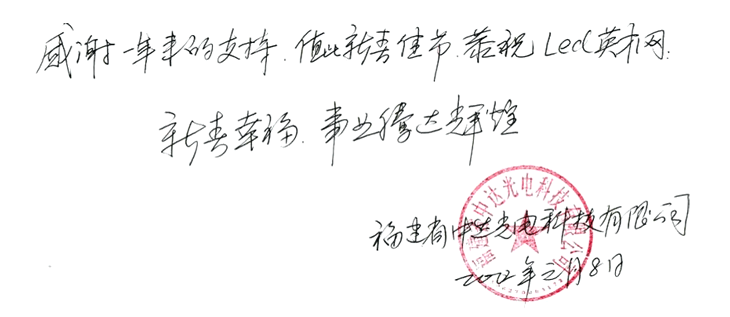 感谢一年来的支持.值此新春佳节.恭祝Led英才网:
新春幸福.事业腾达辉煌
福建省中达光电科技有限公司
福建省中达光电科技有限公司
2012年元月8日